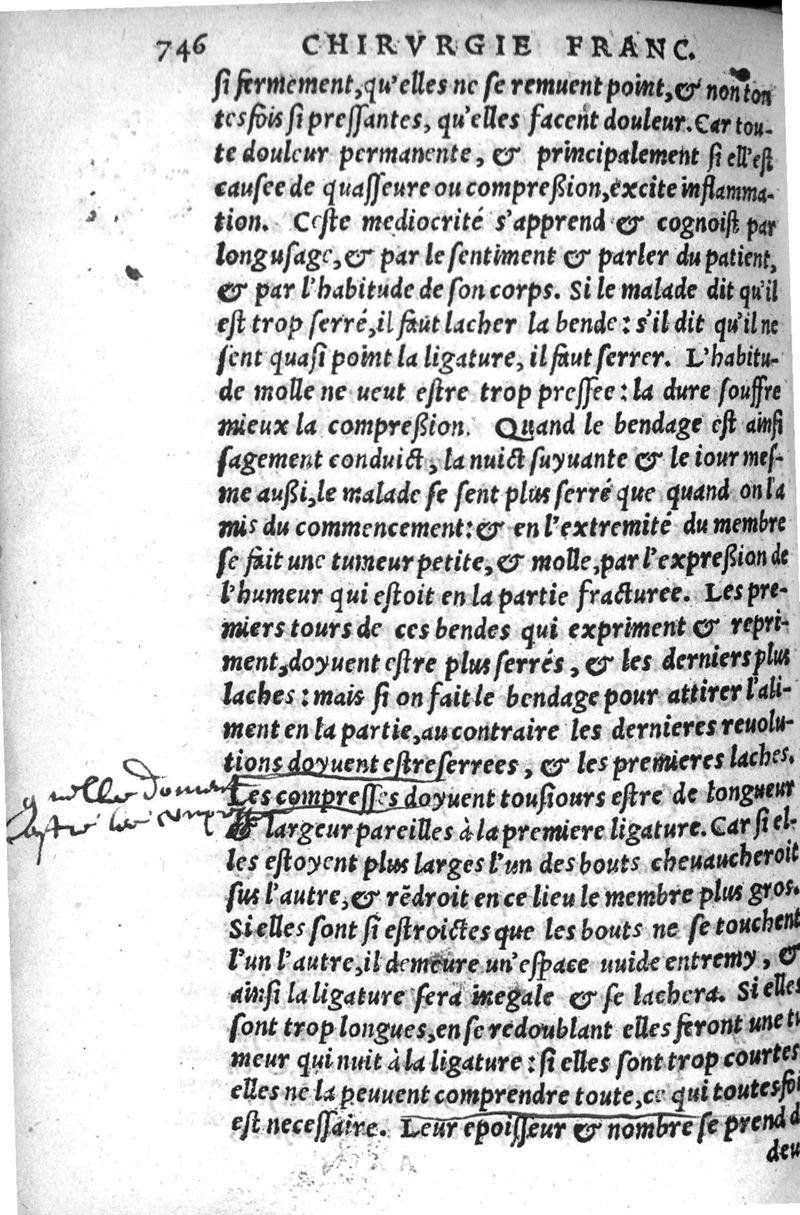 746 CHIRVRGIE FRANC.
ſi fermement, qu'elles ne ſe remuent point, & non ton
tesfois ſi preſſantes, qu'elles facent douleur. Car tou-
te douleur permanente, & principalement ſi ell'eſt
cauſee de quaſſeure ou compreßion, excite inflamma-
tion. Ceſte mediocrité s'apprend & cognoiſt par
long uſage, & par le ſentiment & parler du patient,
& par l'habitude de ſon corps. Si le malade dit qu'il
eſt trop ſerré, il faut lacher la bende : s'il dit qu'il ne
ſent quaſi point la ligature, il faut ſerrer. L'habitu-
de molle ne ueut eſtre trop preſſee : la dure ſouffre
mieux la compreßion. Quand le bendage eſt ainſi
ſagement conduict, la nuict ſuyuante & le iour meſ-
me außi, le malade ſe ſent plus ſerré que quand on l'a
mis du commencement : & en l'extremité du membre
ſe fait une tumeur petite, & molle, par l'expreßion de
l'humeur qui eſtoit en la partie fracturee. Les pre-
miers tours de ces bendes qui expriment & repri-
ment, doyuent eſtre plus ſerrés, & les derniers plus
laches : mais ſi on fait le bendage pour attirer l'ali-
ment en la partie, au contraire les dernieres reuolu-
tions doyuent eſtre ſerrees, & les premieres laches.
quelles doiuent
Les compreſſes doyuent touſiours eſtre de longueur
eſtre les
& largeur pareilles à la premiere ligature. Car ſi el-
les eſtoyent plus larges l'un des bouts cheuaucheroit
ſus l'autre, & rēdroit en ce lieu le membre plus gros.
Si elles ſont ſi eſtroictes que les bouts ne ſe touchent
l'un l'autre, il demeure un'eſpace uuide entremy, &
ainſi la ligature ſera inegale & ſe lachera. Si elles
ſont trop longues, en ſe redoublant elles feront une tu
meur qui nuit à la ligature : ſi elles ſont trop courtes
elles ne la peuuent comprendre toute, ce qui toutesfoi
eſt neceſſaire. Leur epoiſſeur & nombre ſe prend d
deu